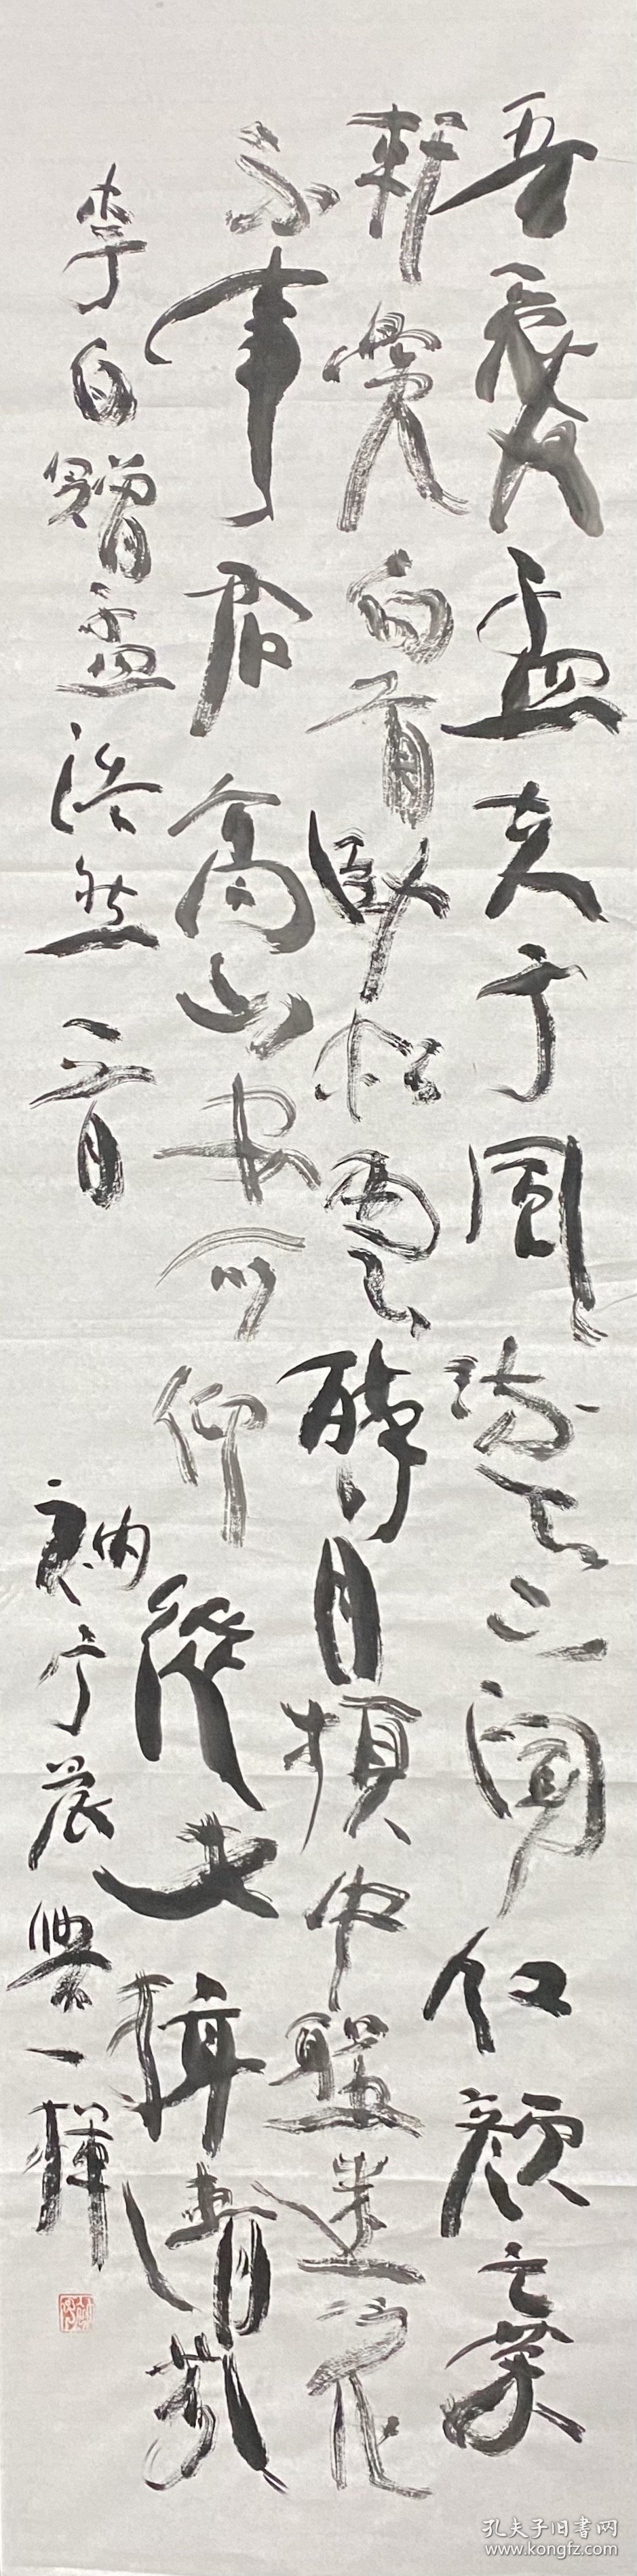 吾愛孟夫子風流天下闻红颜棄
軒冕白首卧松雲醉月頻中聖迷花
不事君高山安可仰從此揖清芬
李白贈孟浩然一首 于晨興一揮
孔夫子旧書网
www.kongfz.com